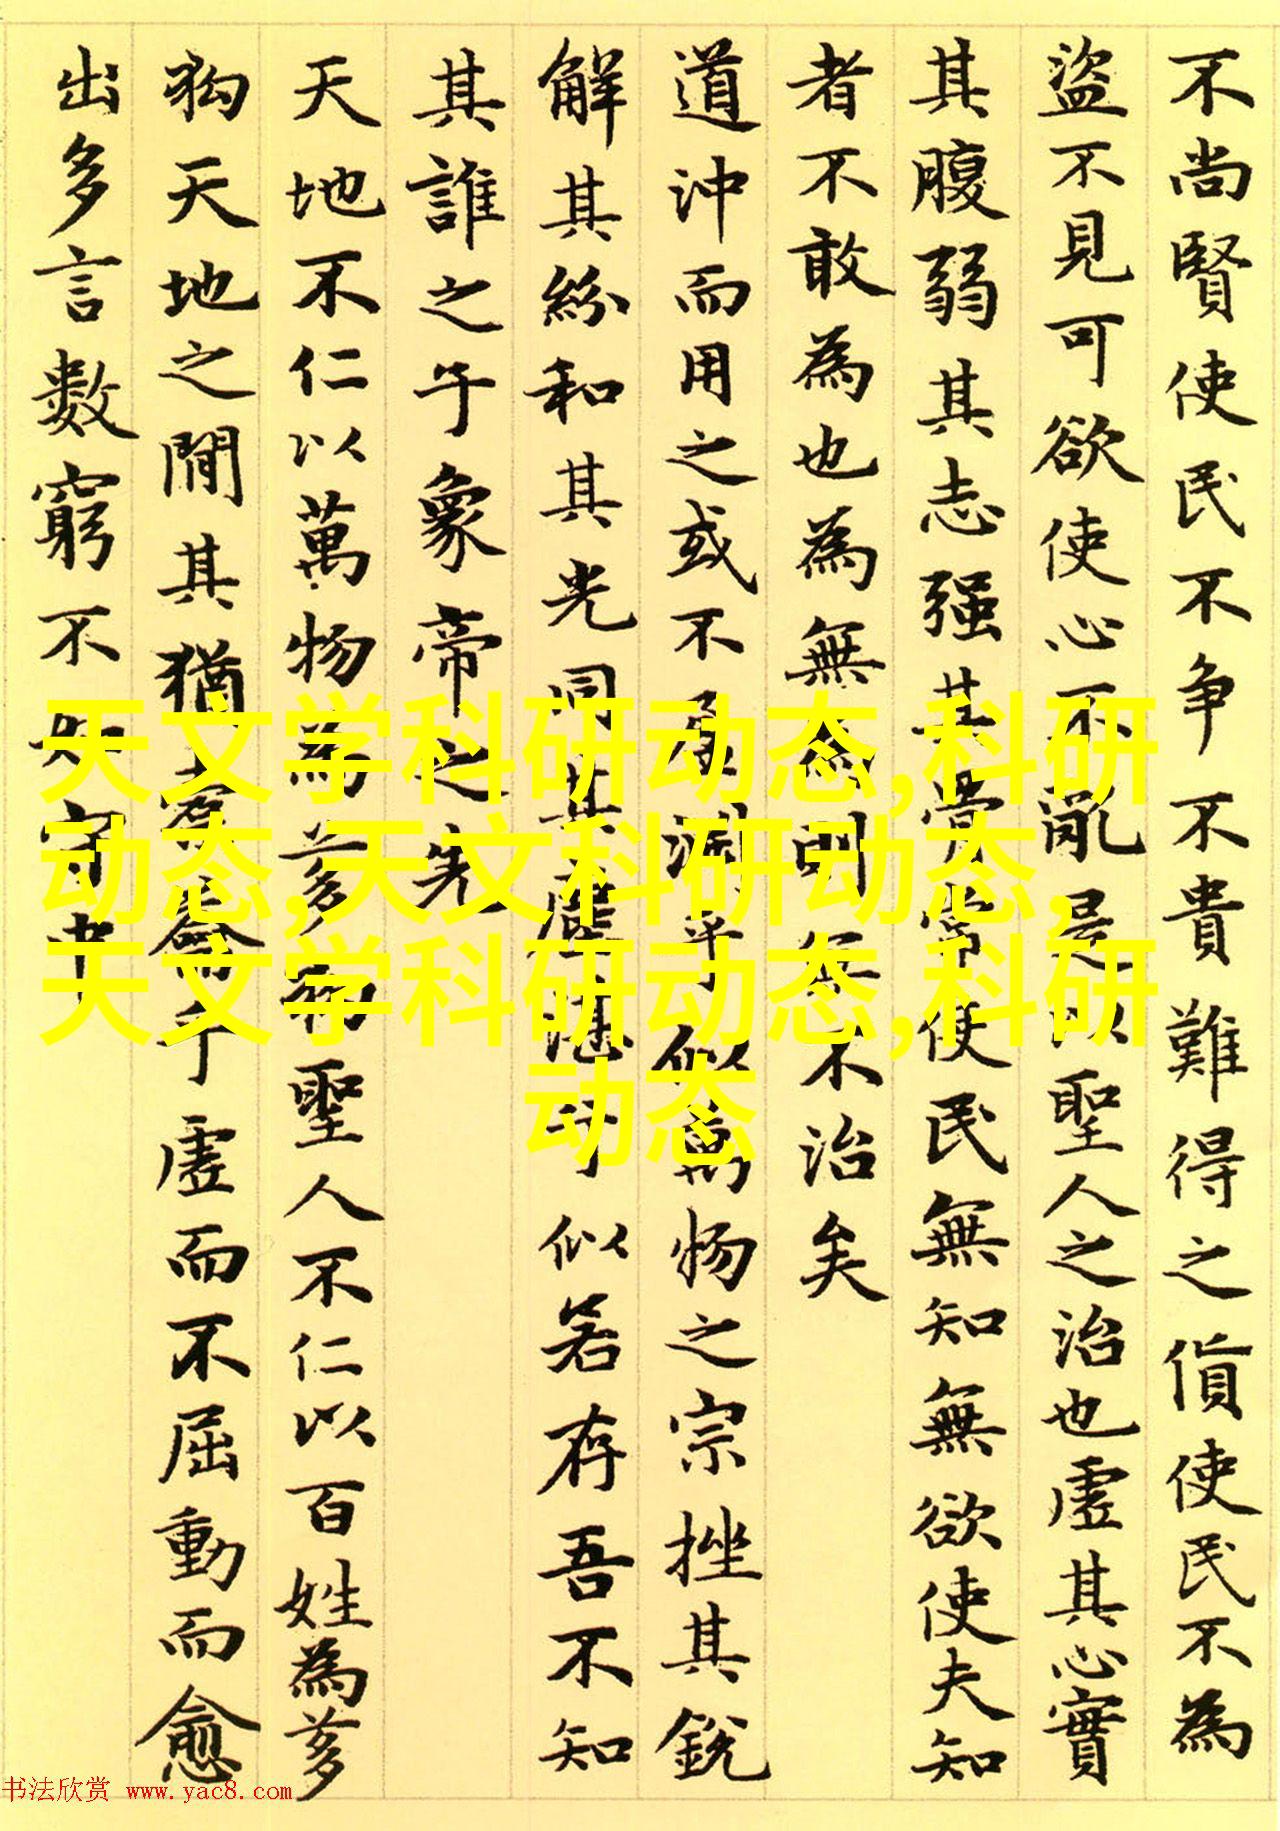 不尚賢使民不争不貴難得之貨使民不為
盜不見可欲使心不亂是以聖人之治也虛其心實
其腹弱其志强其骨常使民無知無欲使夫知
者不敢為也為無為則無不治矣
道沖而用之或不盈淵乎似萬物之宗挫其銳
解其紛和其光同其塵湛乎似若存吾不知
其誰之子象帝之先
天地不仁以萬物為芻狗聖人不仁以百姓為芻
狗天地之間其猶橐籥乎虛而不屈動而愈
出多言數窮不如守中
天文学科研动态,科研
动态,天文科研动态,
天文学科研动态,科研
动态
书法欣赏 www.yac8.com